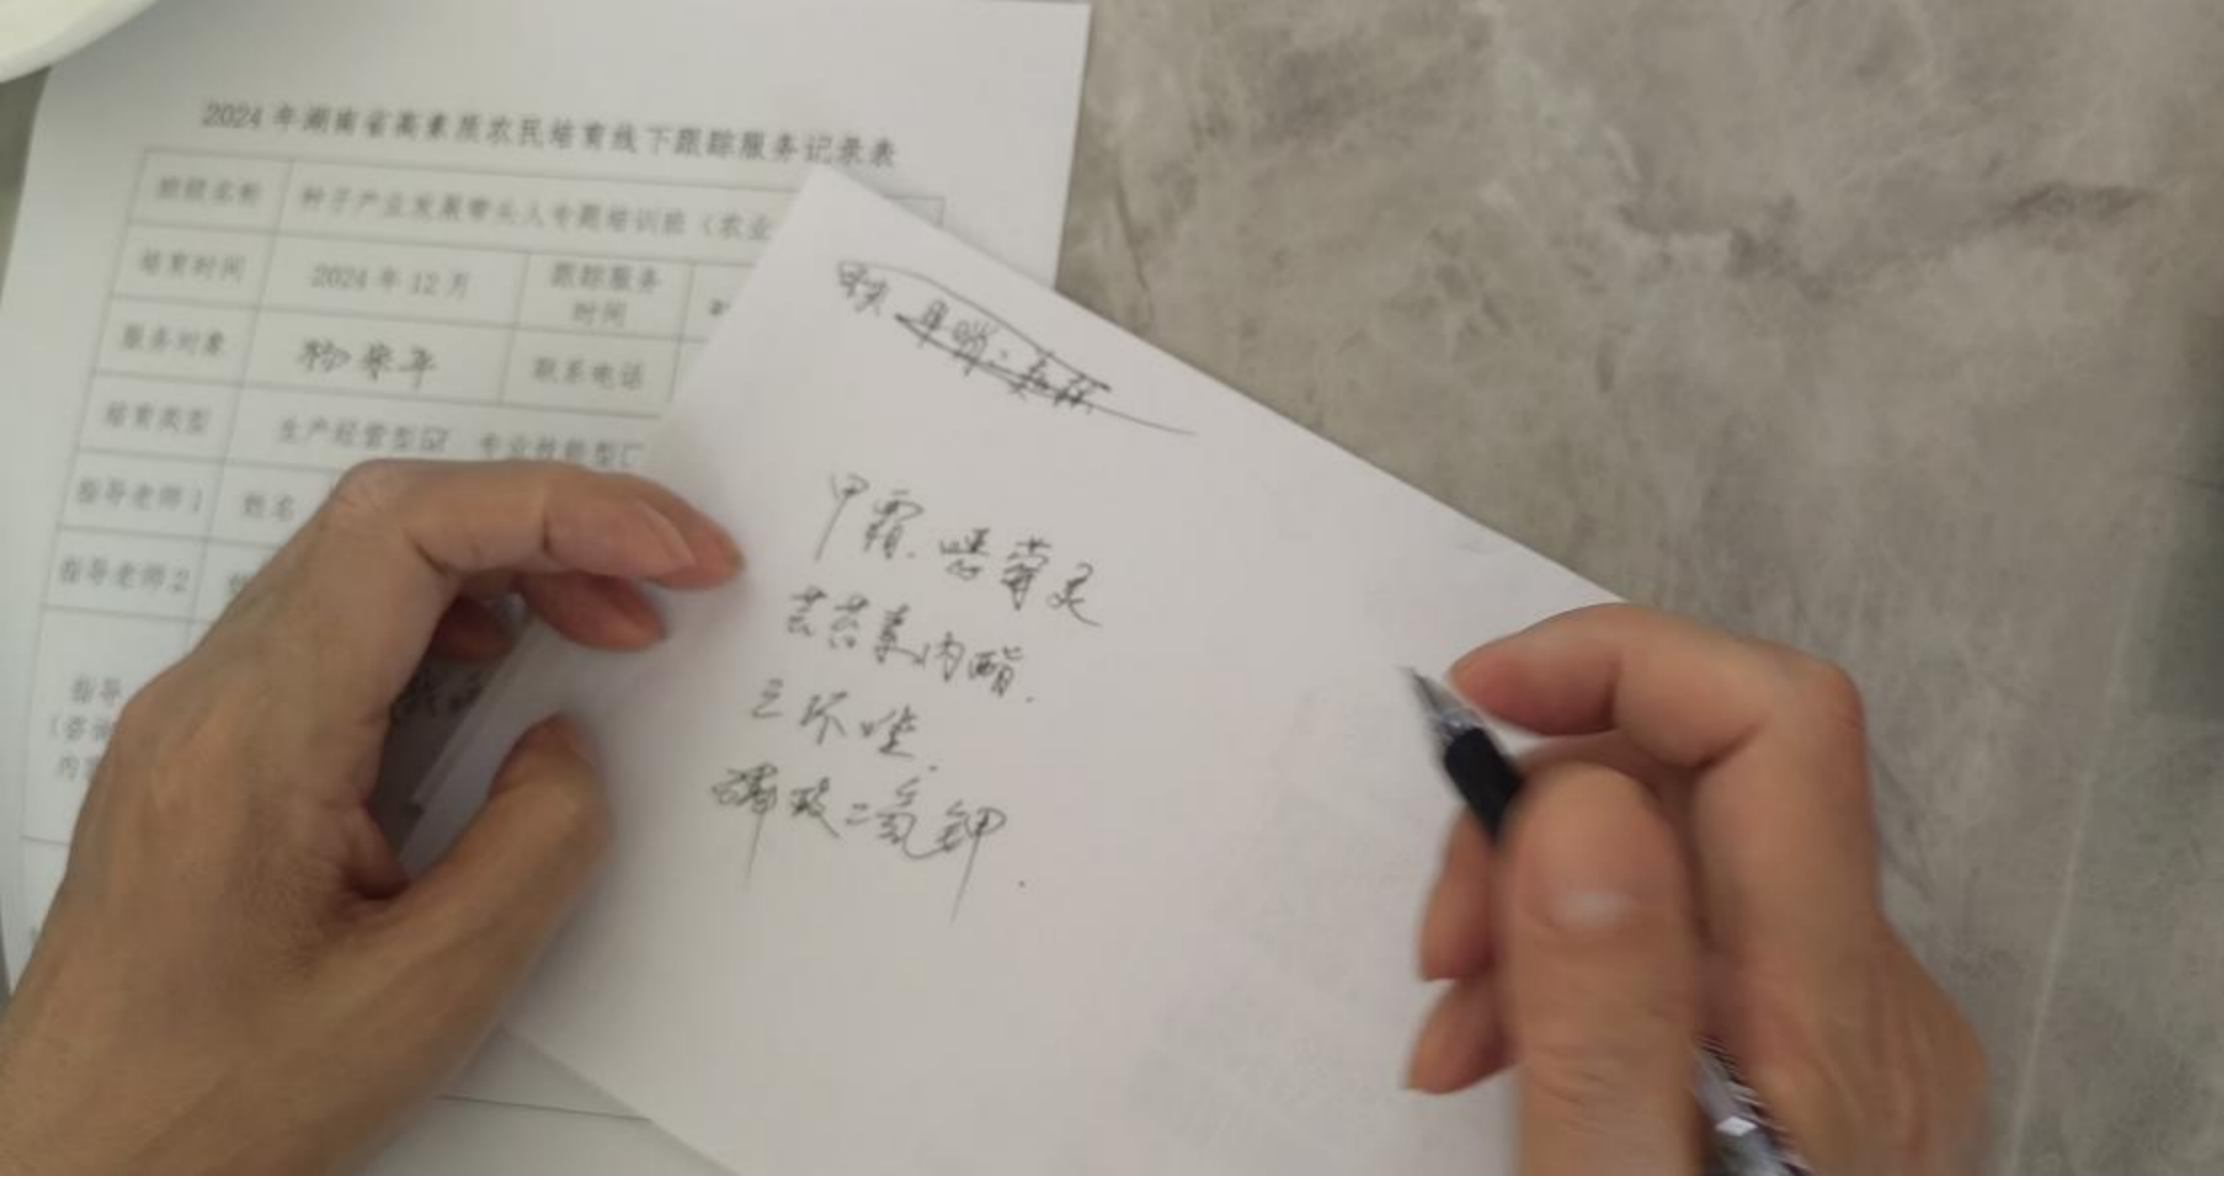 2024年湖南省高素质农民培育线下跟踪服务记录表
班级名称 种子产业发展带头人专题培训班（农业
培育时间 2024年12月 跟踪服务时间
服务对象 联系电话
培育类型 生产经营型☑ 专业技能型
指导老师1 姓名
指导老师2
指导
内容
甲霜.噁霉灵
芸苔素内酯.
三环唑.
磷酸二氢钾.